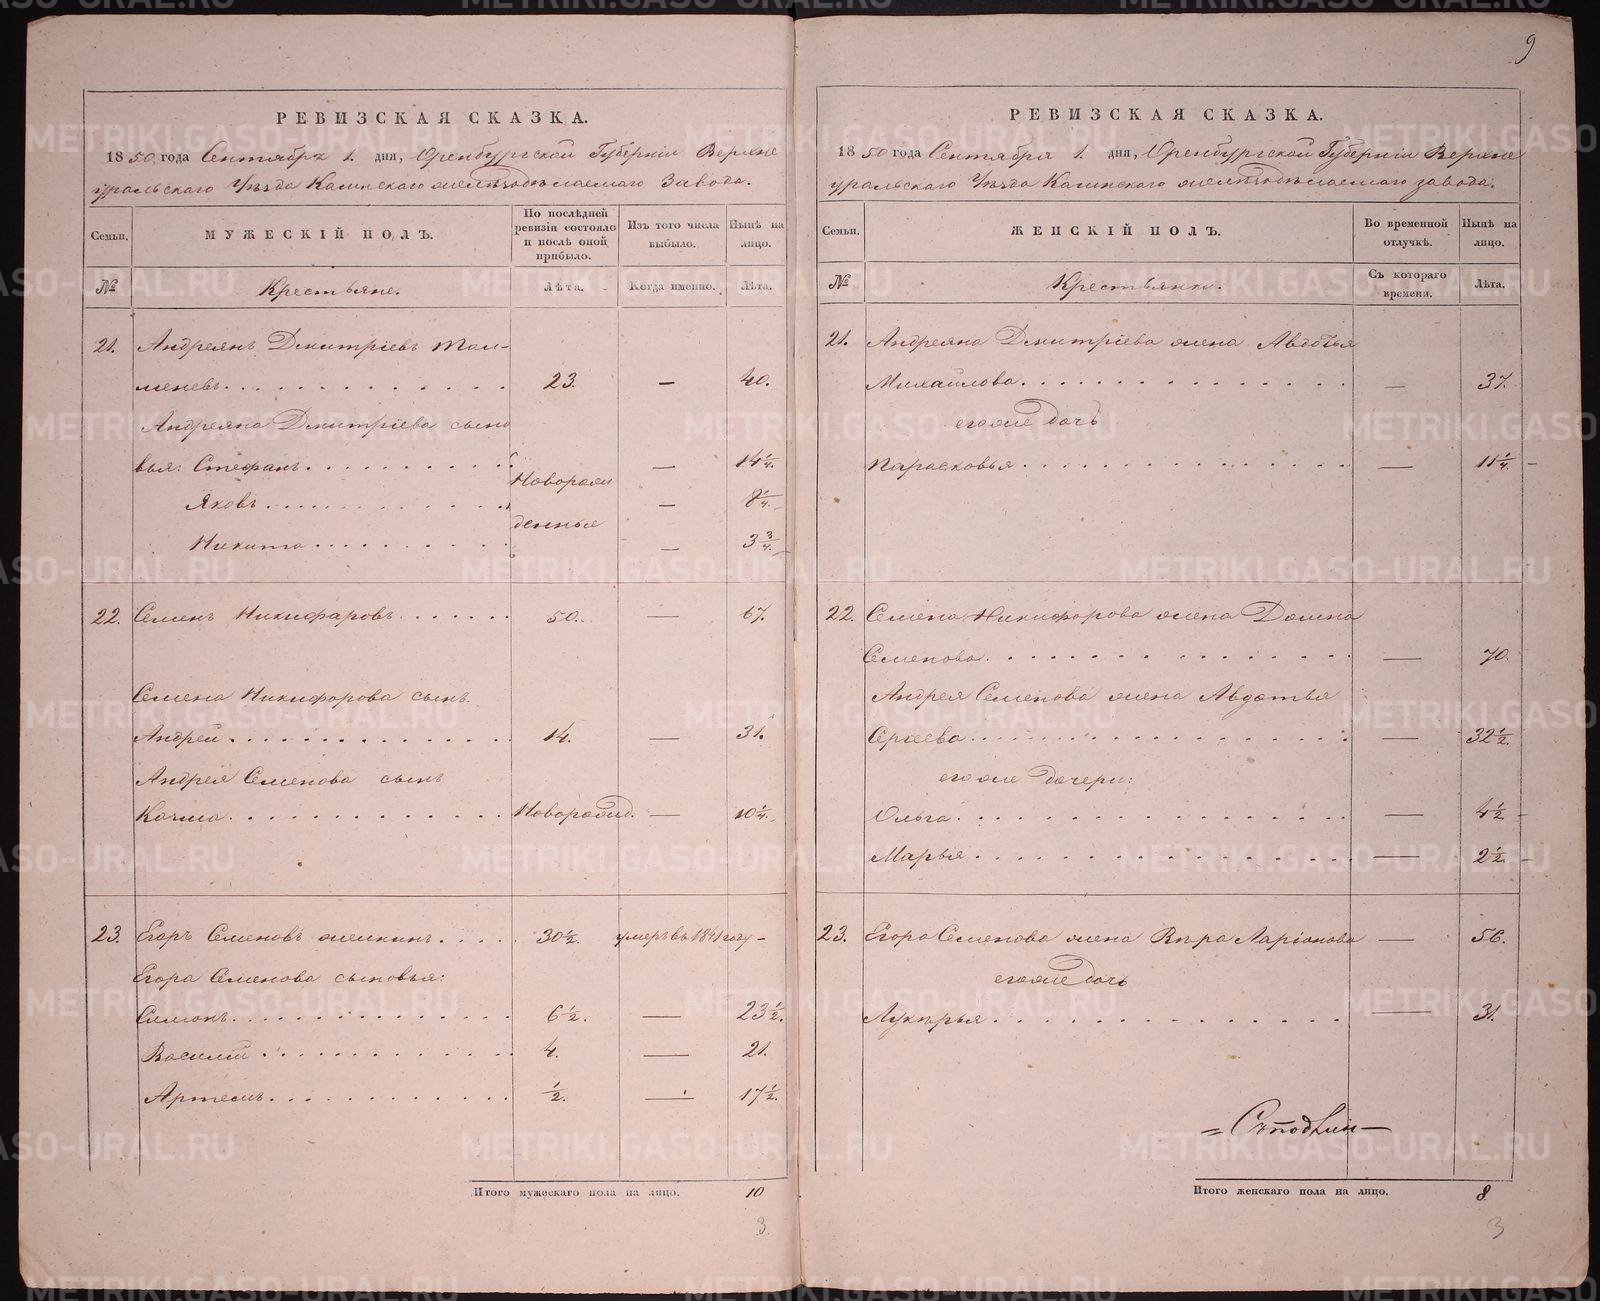 9
РЕВИЗСКАЯ СКАЗКА.
1850 года Сентября 1. дня, Оренбургской Губернiи Верхне
уральскаго Уѣзда Кагинскаго желѣзодѣлаемаго Завода.
Семьи.
МУЖЕСКIЙ ПОЛЪ.
По послѣдней ревизiи состояло и послѣ оной прибыло.
Изъ того числа выбыло.
Нынѣ на лицо.
№
Крестьяне.
Лѣта.
Когда именно.
Лѣта.
21. Андреянъ Дмитрiевъ
меневъ 23. — 40.
Андреяна Дмитрiева сыно
вья: Стефанъ — 14 1/4.
Новорож
Яковъ — 8 1/4.
денныя
Никита — 3 3/4.
22. Семенъ Никифаровъ 50. — 67.
Семена Никифорова сынъ
Андрей 14. — 31.
Андрея Семенова сынъ
Козма Новорожд. — 10 1/4.
23. Егоръ Семеновъ 30 1/2. умеръ въ 1841 году —
Егора Семенова сыновья:
Симонъ 6 1/2. — 23 1/2.
Василiй 4. — 21.
Артемъ 1/2. — 17 1/2.
Итого мужескаго пола на лицо. 10
3
РЕВИЗСКАЯ СКАЗКА.
1850 года Сентября 1. дня, Оренбургской Губернiи Верхне
уральскаго Уѣзда Кагинскаго желѣзодѣлаемаго завода.
Семьи.
ЖЕНСКIЙ ПОЛЪ.
Во временной отлучкѣ.
Нынѣ на лицо.
№
Крестьянки.
Съ котораго времени.
Лѣта.
21. Андреяна Дмитрiева жена Авдотья
Михайлова — 37.
егоже дочь
Парасковья — 11 1/4. —
22. Семена Никифорова жена Домна
Семенова — 70.
Андрея Семенова жена Авдотья
Сргеева — 32 1/2.
егоже дочери:
Ольга — 4 1/2 —
Марья — 2 1/2. —
23. Егора Семенова жена Вѣра Ларiонова — 56.
егоже дочь
Лукѣрья — 31.
Итого женскаго пола на лицо. 8.
3
METRIKI.GASO-URAL.RU